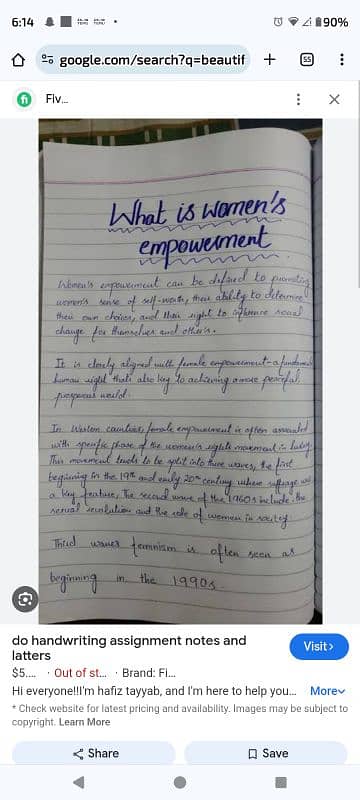 6:14
90%
google.com/search?q=beautif
55
Fiv...
What is women's
empowerment
Women's empowerment can be defined to promoting
women's sense of self-worth, their ability to determine
their own choices, and their right to influence social
change for themselves and others.
It is closely aligned with female empowerment-a fundamental
human right that's also key to achieving a more peaceful
prosperous world.
In Western countries, female empowerment is often associated
with specific phase of the women's rights movement in history
This movement tends to be split into three waves, the first
beginning in the 19th and early 20th century where suffrage was
a key feature. The second wave of the 1960s include the
sexual revolution and the role of women in society
Third waves feminism is often seen as
beginning in the 1990s.
do handwriting assignment notes and
latters
Visit
$5.... · Out of st... · Brand: Fi...
Hi everyone!!I'm hafiz tayyab, and I'm here to help you... More
* Check website for latest pricing and availability. Images may be subject to
copyright. Learn More
Share
Save